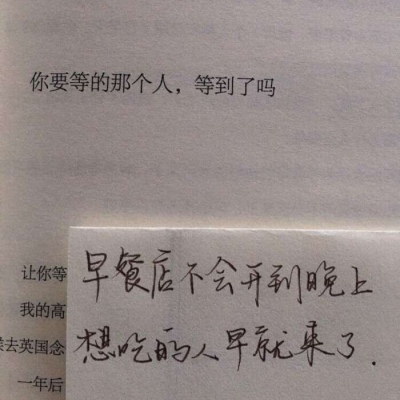 你要等的那个人，等到了吗
让你等
我的高
去英国念
一年后
早餐店不会开到晚上
想吃的人早就来了.